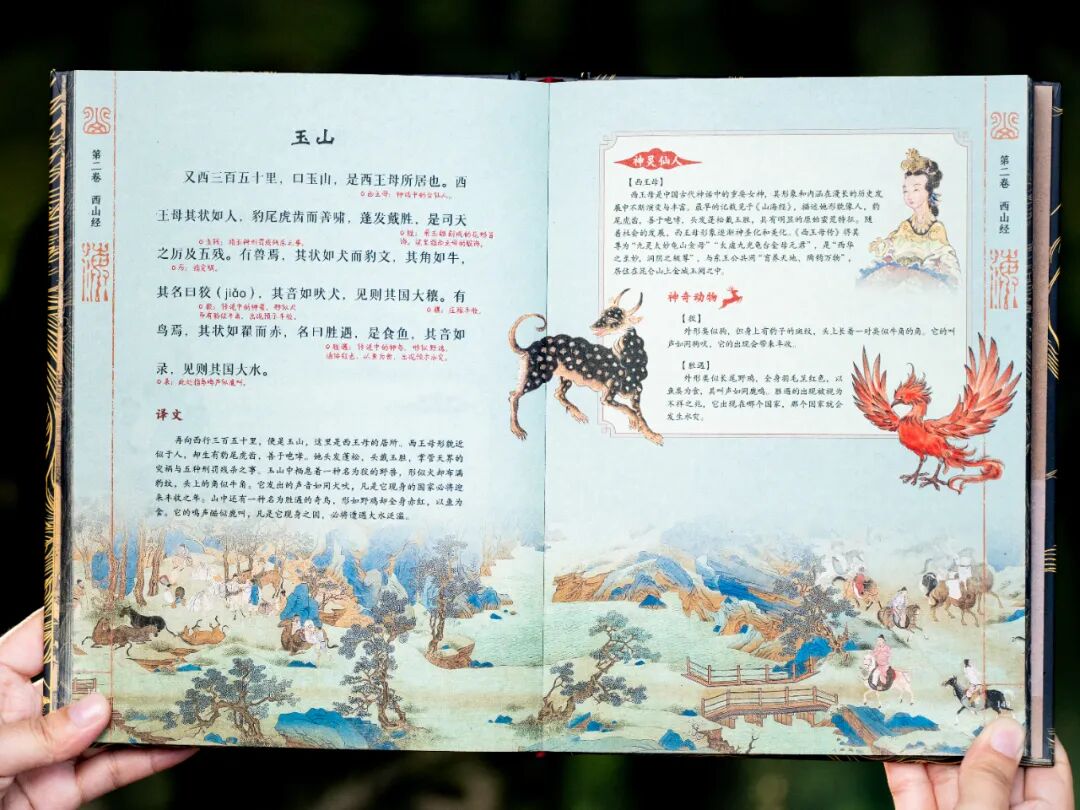 第二卷 西山经
玉山
又西三百五十里，曰玉山，是西王母所居也。西
西王母：神话中的女仙人。
王母其状如人，豹尾虎齿而善啸，蓬发戴胜，是司天
之厉及五残。有兽焉，其状如犬而豹文，其角如牛，
其名曰狡（jiǎo），其音如吠犬，见则其国大穰。有
穰：庄稼丰收。
鸟焉，其状如翟而赤，名曰胜遇，是食鱼，其音如
录，见则其国大水。
录：此处指鸟鸣声似鹿叫。
译文
再向西行三百五十里，便是玉山，这里是西王母的居所。西王母形貌近
似于人，却生有豹尾虎齿，善于咆哮。她头发蓬松，头戴玉胜，掌管天界的
灾祸与五种刑罚残杀之事。玉山中栖息着一种名为狡的野兽，形似犬却布满
豹纹，头上的角似牛角。它发出的声音如同犬吠，凡是它现身的国家必将迎
来丰收之年。山中还有一种名为胜遇的奇鸟，形如野鸡却全身赤红，以鱼为
食。它的鸣声酷似鹿叫，凡是它现身之国，必将遭遇大水泛滥。
神灵仙人
【西王母】
西王母是中国古代神话中的重要女神，其形象和内涵在漫长的历史发
展中不断演变与丰富。最早的记载见于《山海经》，描述她形貌像人，豹
尾虎齿，善于咆哮，头发蓬松戴玉胜，具有明显的原始蛮荒特征。随
着社会的发展，西王母形象逐渐神圣化和美化。《西王母传》将其
尊为“九灵太妙龟山金母”“太虚九光龟台金母元君”，是“西华
之至妙，洞阴之极尊”，与东王公共同“育养天地，陶钧万物”，
居住在昆仑山上金城玉阙之中。
神奇动物
【狡】
外形类似狗，但身上有豹子的斑纹，头上长着一对类似牛角的角。它的叫
声如同狗吠，它的出现会带来丰收。
【胜遇】
外形类似长尾野鸡，全身羽毛呈红色，以
鱼类为食，其叫声如同鹿鸣。胜遇的出现被视为
不祥之兆，它出现在哪个国家，那个国家就会
发生水灾。
第二卷 西山经